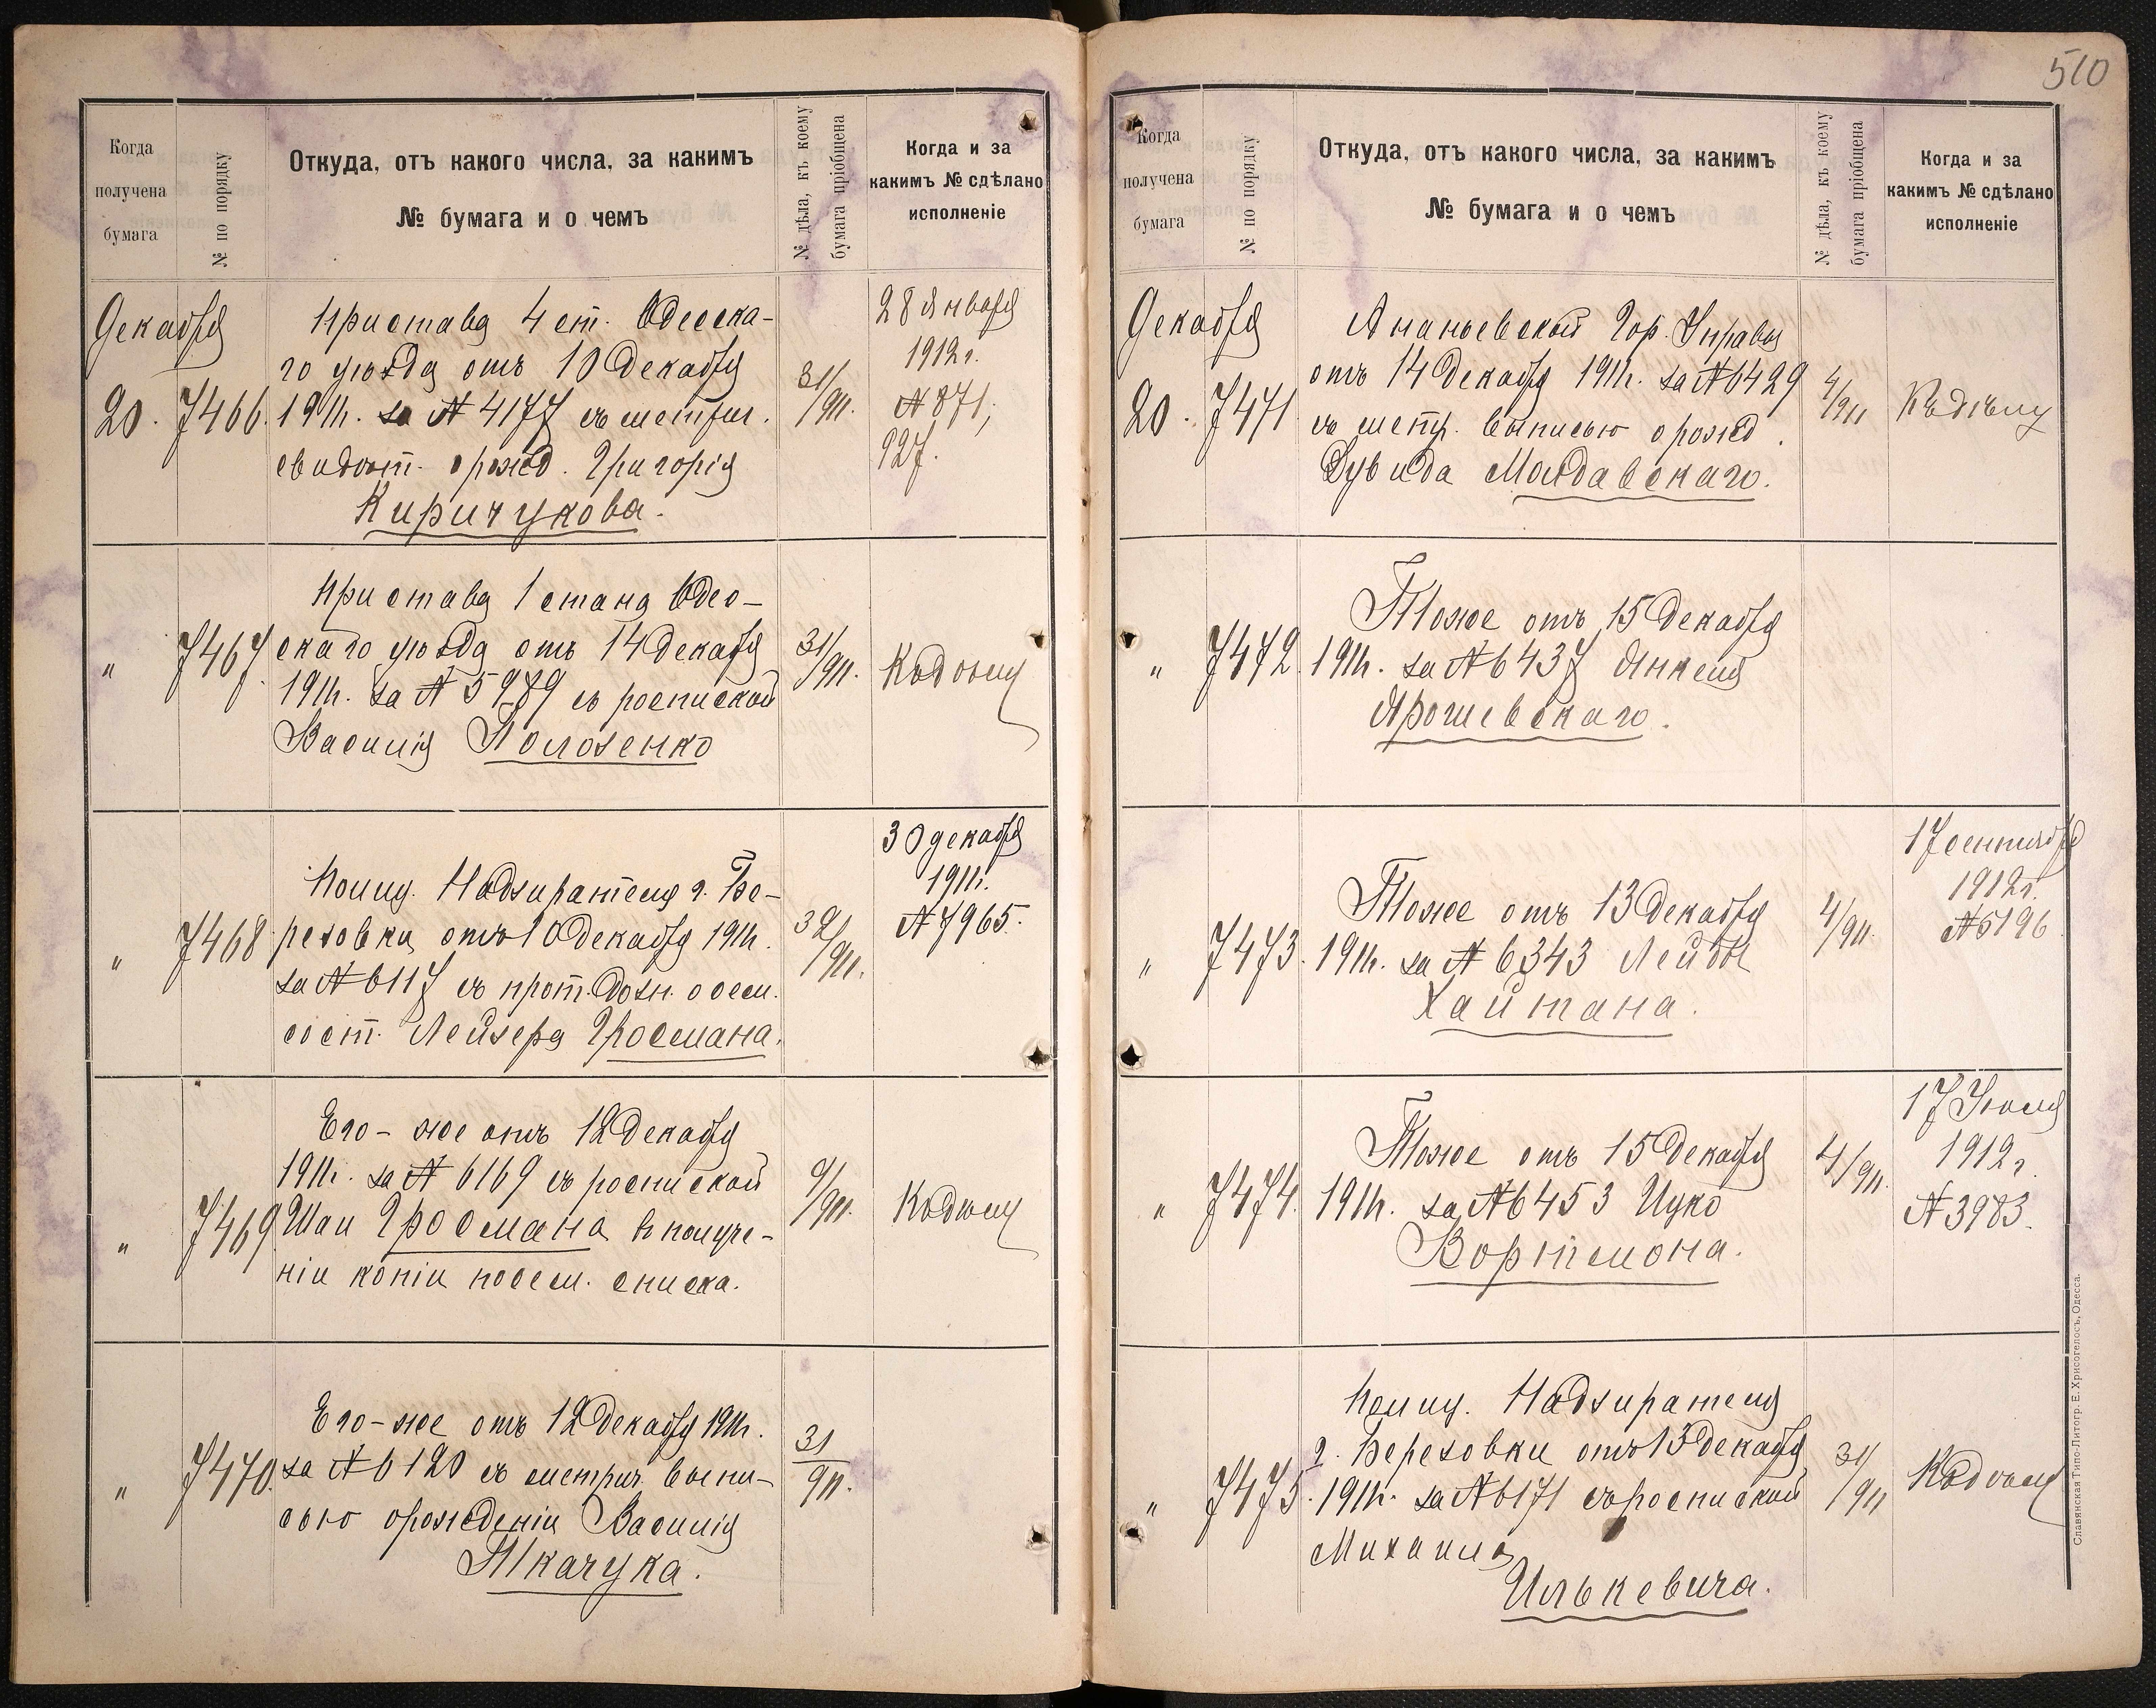 510
Когда
получена
бумага
№ по порядку
Откуда, отъ какого числа, за какимъ
№ бумага и о чемъ
№ дѣла, къ коему
бумага пріобщена
Когда и за
какимъ № сдѣлано
исполненіе
Декабря
20.
7466.
Пристава 4 ст. Одесска-
го уѣзда отъ 10 Декабря
1911г. за № 4177 съ метрич.
свидѣт. о рожд. Григорія
Киричукова.
31/911.
28 Января
1912г.
№ 871,
927.
"
7467.
Пристава 1 стана Одес-
скаго уѣзда отъ 14 Декабря
1911г. за № 5989 съ роспиской
Василія Полозенко
31/911.
Къ дѣлу
"
7468
Полиц. Надзирателя г. Бе-
резовки отъ 10 Декабря 1911г.
за № 6117 съ прот. дозн. о сем.
сост. Лейзера Гросмана.
32/911.
30 декабря
1911г.
№ 7965.
"
7469
Его-же отъ 12 Декабря
1911г. за № 6169 съ роспиской
Шаи Гросмана в получе-
ніи копіи посем. списка.
9/911.
Къ дѣлу
"
7470.
Его-же отъ 12 Декабря 1911г.
за № 6120 съ метрич. выпи-
сью о рожденіи Василія
Ткачука.
31/911.
Когда
получена
бумага
№ по порядку
Откуда, отъ какого числа, за какимъ
№ бумага и о чемъ
№ дѣла, къ коему
бумага пріобщена
Когда и за
какимъ № сдѣлано
исполненіе
Декабря
20.
7471
Ананьевской Гор. Управы
отъ 14 Декабря 1911г. за № 6429
съ метр. выписью о рожд.
Дувида Молдавскаго.
4/911
Къ дѣлу
"
7472.
Тоже отъ 15 Декабря
1911г. за № 6437 Янкеля
Ярошевскаго.
"
7473.
Тоже отъ 13 Декабря
1911г. за № 6343 Лейбы
Хайтана.
4/911.
17 сентября
1912г.
№ 5196
"
7474.
Тоже отъ 15 Декабря
1911г. за № 6453 Ицко
Вортмона.
4/911.
17 Июля
1912г.
№ 3983.
"
7475.
Полиц. Надзирателя
г. Березовки отъ 13 Декабря
1911г. за № 6171 съ роспиской
Михаила
Илькевича.
31/911
Къ дѣлу
Славянская Типо-Литогр. Е. Хрисогелосъ, Одесса.